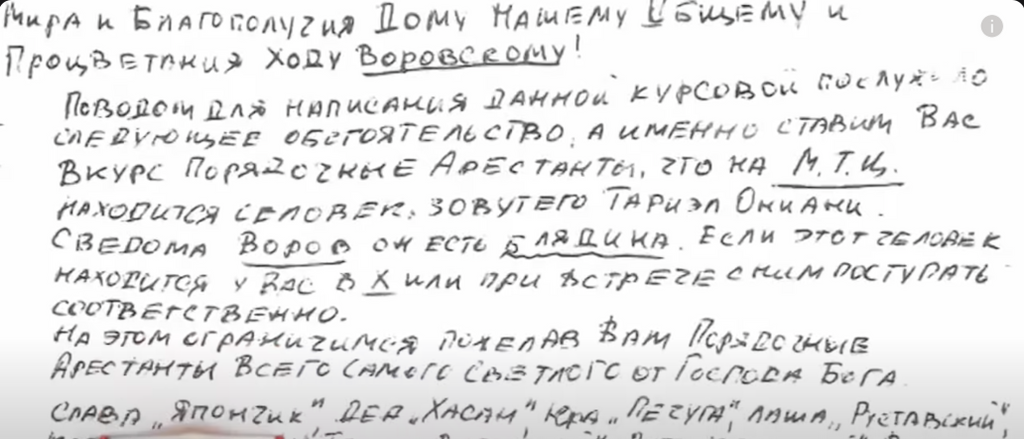 Мира и Благополучия Дому Нашему Общему и
Процветания Ходу Воровскому!
Поводом для написания данной курсовой послужило
следующее обстоятельство, а именно ставим Вас
вкурс Порядочные Арестанты, что на М.Т.Ц.
находится человек, зовутего Тариэл Ониани.
Сведома Воров он есть блядина. Если этот человек
находится у Вас в Х или при встрече сним поступать
соответственно.
На этом ограничимся пожелав Вам Порядочные
Арестанты Всего Самого Светлого от Господа Бога.
Слава „Япончик", Дед „Хасан", Юра „Пичуга", Лаша „Руставский",